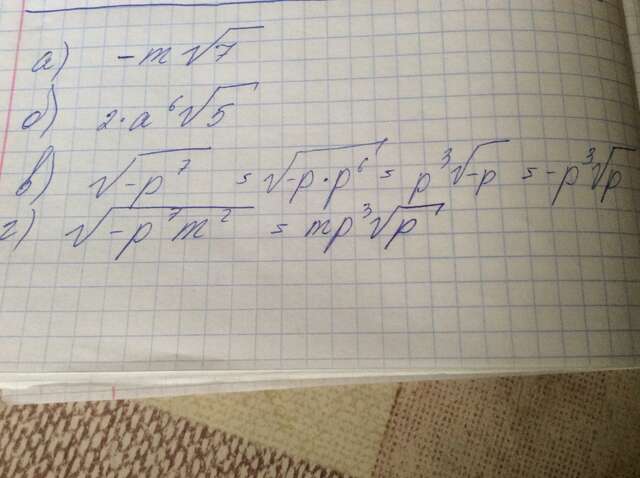 а) -m√7
б) 2·a⁶√5
в) √-p⁷ = √-p·p⁶ = p³√-p = -p³√p
г) √-p⁷m² = mp³√p